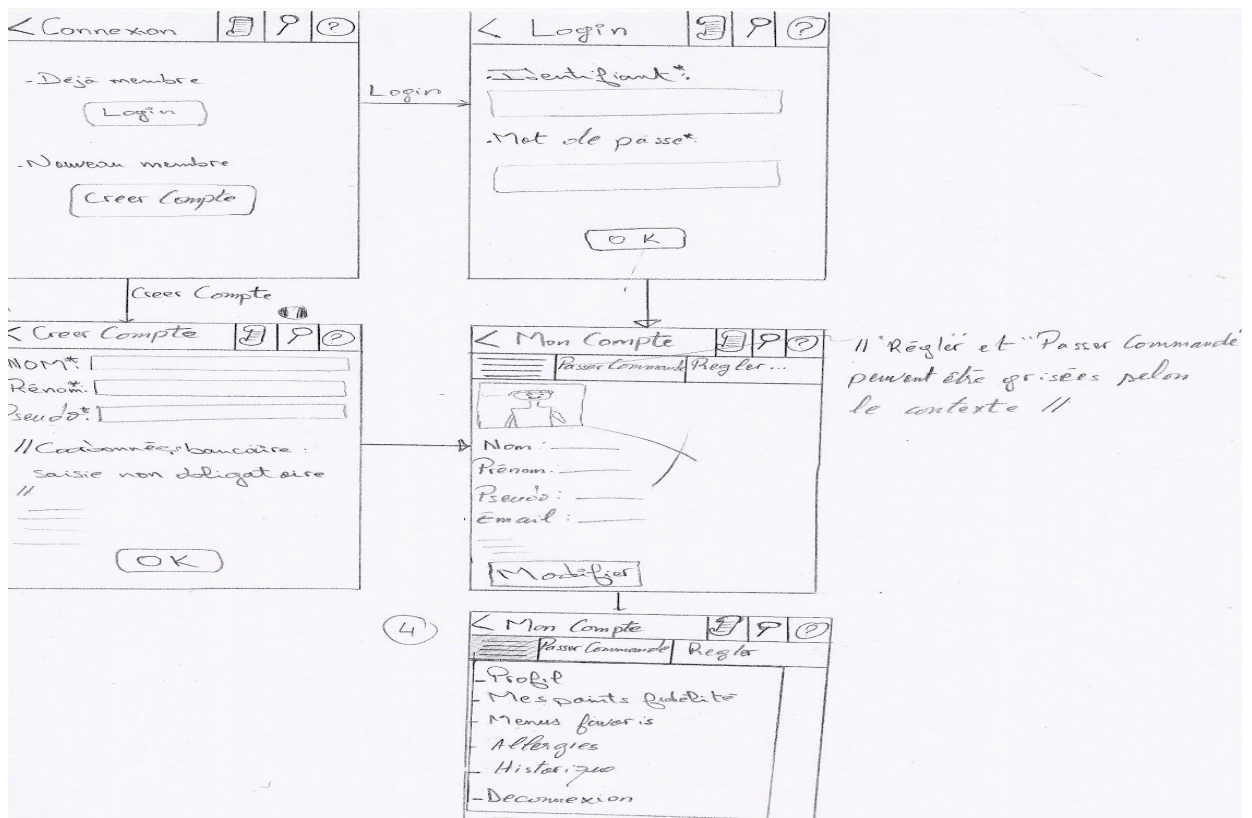 < Connexion
?
- Déjà membre
Login
- Nouveau membre
Creer Compte
Login
< Login
?
- Identifiant* :
- Mot de passe*
OK
Creer Compte
< Creer Compte
?
NOM* :
Prénom*
Pseudo* :
// Coordonnées bancaire :
saisie non obligatoire
//
OK
< Mon Compte
?
Passer Commande Regler...
Nom :
Prénom :
Pseudo :
Email :
Modifier
// "Régler" et "Passer Commande"
peuvent être grisées selon
le contexte //
4
< Mon Compte
?
Passer Commande Regler
- Profil
- Mes points fidélité
- Menus favoris
- Allergies
- Historique
- Deconnexion